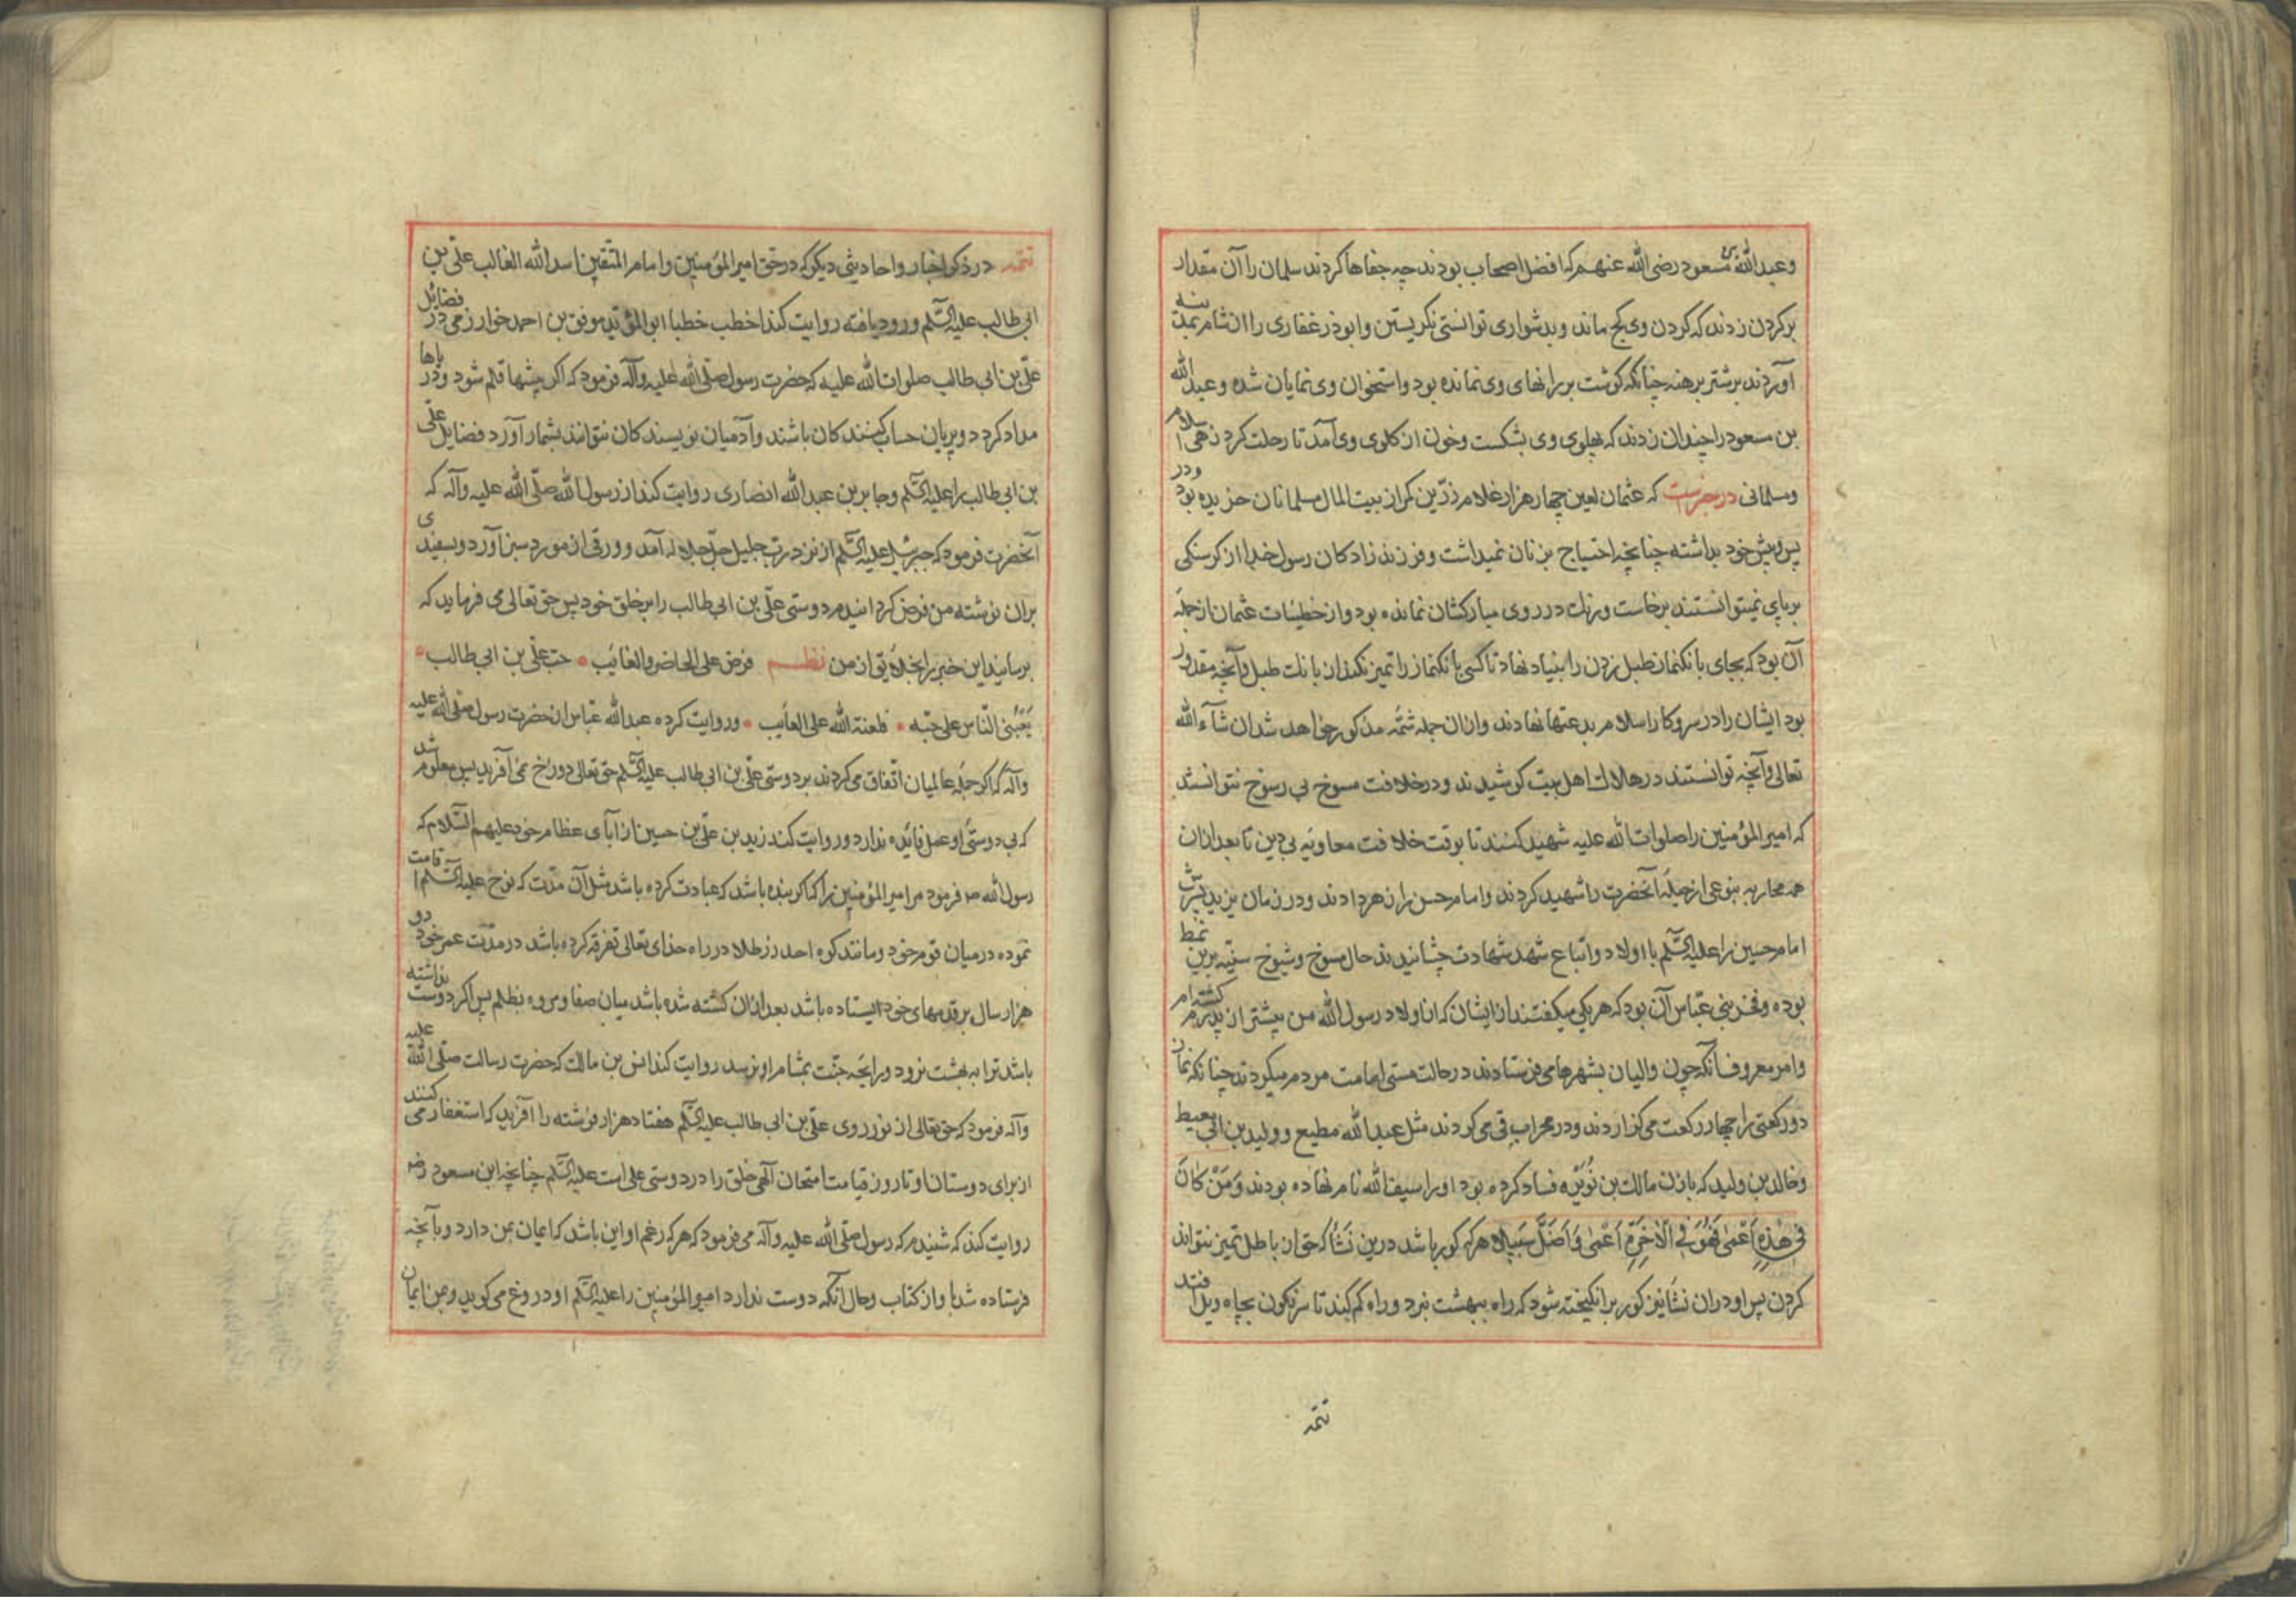 وعبدالله بن مسعود رضی الله عنهم که افضل اصحاب بودند چه جفاها کردند سلمان را آن مقدار
بر کردن زدند که کردن وی کج ماند وبدشواری توانستی نکریستن وابوذر غفاری را از شام بمدینه
آوردند بر شتر برهنه چنانکه کوشت بر رانهای وی نمانده بود واستخوان وی نمایان شده وعبد الله
بن مسعود را چندان زدند که پهلوی وی بشکست وخون از کلوی وی آمد تا رحلت کرد زهی اسلام
ومسلمانی در خبرست که عثمان لعین چهار هزار غلام زرّین کمر از بیت المال مسلمانان خریده بود ودر
پس وپیش خود بداشته چنانچه احتیاج بزنان نمیداشت وفرزند زادکان رسول خدا از کرسنکی
بر پای نمیتوانستند برخاست ورنک در روی مبارکشان نمانده بود واز خطیئات عثمان از جملهٔ
آن بود که بجای بانک نماز طبل زدن را بنیاد نهاد تا کسی بانک نماز را تمیز نکند از بانک طبل وآنچه مقدور
بود ایشان را در سر وکار اسلام بدعتها نهادند وازان جمله شمّه مذکور خواهد شد ان شآء الله
تعالی وآنچه توانستند در هلاک اهل بیت کوشیدند ودر خلافت مسوخ بی رسوخ نتوانستند
که امیر المؤمنین را صلوات الله علیه شهید کنند تا بوقت خلافت معاویه بی دین تا بعد ازان
همه محاربه بنوعی از حیله آنحضرت را شهید کردند وامام حسن را زهر دادند ودر زمان یزید پسرش
امام حسین را علیه السّلم با اولاد واتباع شهد شهادت چشانیدند حال مسوخ وشیوخ سنّیه برین نمط
بوده وفخر بنی عبّاس آن بود که هر یکی میکفتند از ایشان که از اولاد رسول الله من بیشتر از پدرم کشته ام
وامر معروف آنکه چون والیان بشهرها می فرستادند در حالت مستی امامت مردم میکردند چنانکه نماز
دو رکعتی را چهار رکعت می کزاردند ودر محراب قی می کردند مثل عبدالله مطیع وولید بن ابی معیط
وخالد بن ولید که بازن مالک بن نُوَیْره فساد کرده بود اورا سیف الله نام نهاده بودند وَمَنْ کَانَ
فِی هٰذِهِ اَعْمٰی فَهُوَ فِی الْاٰخِرَةِ اَعْمٰی وَاَضَلُّ سَبِیلا هر که کور باشد درین نشا که حق از باطل تمیز نتواند
کردن پس او دران نشا نیز کور برانکیخته شود که راه ببهشت نبرد وراه کم کند تا سرنکون بچاه ویل افتد
تتمه
تتمه در ذکر اخبار واحادیثی دیکر که در حق امیر المؤمنین وامام المتّقین اسد الله الغالب علّی بن
ابی طالب علیه السّلم ورود یافته روایت کند اخطب خطبا ابو المؤیّد موفق بن احمد خوارزمی در فضائل
علّی بن ابی طالب صلوات الله علیه که حضرت رسول صلّی الله علیه وآله فرمود که اکر بیشها قلم شود ودریاها
مداد کردد وپریان حساب کنندکان باشند وآدمیان نویسندکان نتوانند بشمار آورد فضایل علّی
بن ابی طالب را علیه السّلم وجابر بن عبدالله انصاری روایت کند از رسول الله صلّی الله علیه وآله که
آنحضرت فرمود که جبرئیل علیه السّلم از نزد رب جلیل جلّ جلاله آمد وورقی از مورد سبز آورد وبسفیدی
بران نوشته من فرض کردانیدم دوستی علّی بن ابی طالب را بر خلق خود پس حق تعالی می فرماید که
برسانید این خبر را بخلایق از من نظم فرض علی الحاضر والغائب • حب علّی بن ابی طالب •
یَعْبُنِی النّاس علی حبّه • فلعنة الله علی العایب • وروایت کرده عبدالله عبّاس از حضرت رسول صلّی الله علیه
وآله که اکر جمله عالمیان اتّفاق می کردند بر دوستی علّی بن ابی طالب علیه السّلم حق تعالی دوزخ نمی آفرید پس معلوم شد
که بی دوستی او عمل فائیده ندارد وروایت کند زید بن علّی بن حسین از آبای عظام خود علیهم السّلام که
رسول الله ص فرمود مر امیر المؤمنین را که اکر بنده باشد که عبادت کرده باشد مثل آن مدّت که نوح علیه السّلم اقامت
نموده در میان قوم خود ومانند کوه احد زر طلا در راه خدای تعالی تفرقه کرده باشد در مدّت عمر خود ودو
هزار سال بر قدمهای خود ایستاده باشد بعد ازان کشته شده باشد میان صفا ومروه بظلم پس اکر دوست نداشته
باشد ترا به بهشت نرود ورایحه جنّت بمشام او نرسد روایت کند انس بن مالک که حضرت رسالت صلّی الله علیه
وآله فرمود که حق تعالی از نور روی علّی بن ابی طالب علیه السّلم هفتاد هزار فرشته را آفرید که استغفار می کنند
از برای دوستان او تا روز قیامت امتحان آلهی خلق را در دوستی علی است علیه السّلم چنانچه ابن مسعود رضه
روایت کند که شنیدم که رسول صلّی الله علیه وآله می فرمود که هر که زعم او این باشد که ایمان بمن دارد وبآنچه
فرستاده شد با و از کتاب وحال آنکه دوست ندارد امیر المؤمنین را علیه السّلم او دروغ می کوید وبمن ایمان